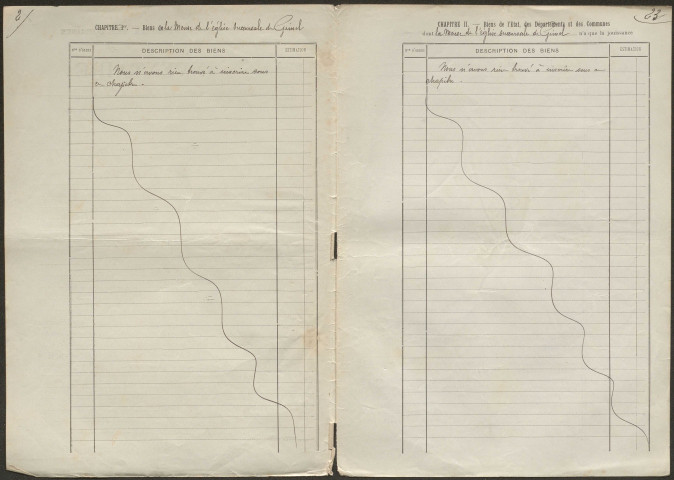 8/
CHAPITRE Ier. — Biens de la Mense de l'église succursale de Gimel
Nos d'ordre DESCRIPTION DES BIENS ESTIMATION
Nous n'avons rien trouvé à inscrire sous
ce chapitre.
CHAPITRE II. — Biens de l'État, des Départements et des Communes
dont la Mense de l'église succursale de Gimel n'a que la jouissance
Nos d'ordre DESCRIPTION DES BIENS ESTIMATION
Nous n'avons rien trouvé à inscrire sous ce
chapitre.